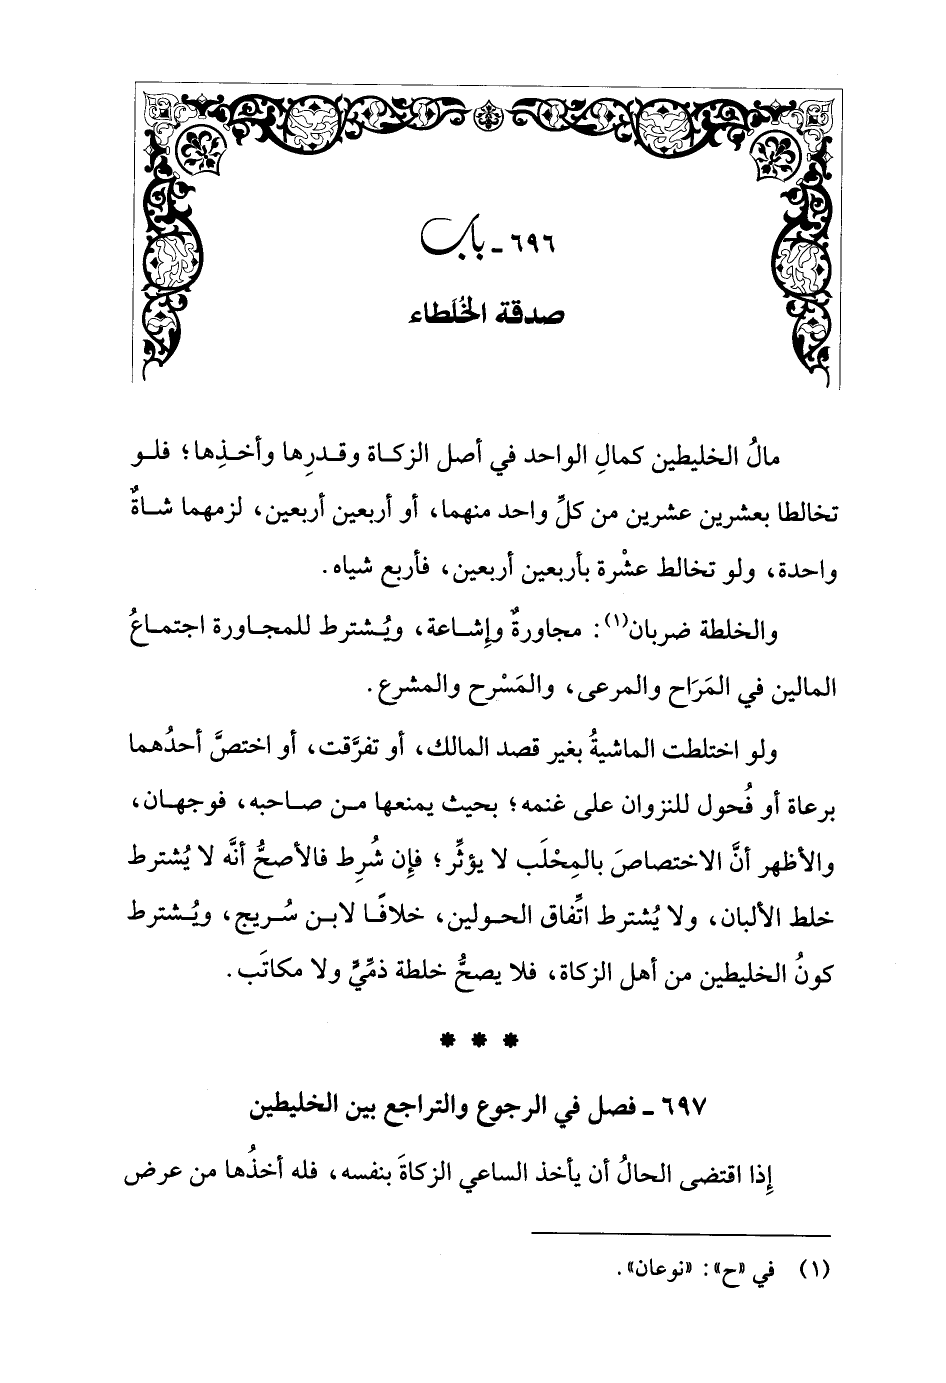 ٦٩٦ - باب
صدقة الخُلَطاء
مالُ الخليطين كمالِ الواحد في أصل الزكاة وقدرِها وأخذِها؛ فلو
تخالطا بعشرين عشرين من كلِّ واحد منهما، أو أربعين أربعين، لزمهما شاةٌ
واحدة، ولو تخالط عشْرة بأربعين أربعين، فأربع شياه.
والخلطة ضربان(١): مجاورةٌ وإشاعة، ويُشترط للمجاورة اجتماعُ
المالين في المَرَاح والمرعى، والمَسْرح والمشرع.
ولو اختلطت الماشيةُ بغير قصد المالك، أو تفرَّقت، أو اختصَّ أحدُهما
برعاة أو فُحول للنزوان على غنمه؛ بحيث يمنعها من صاحبه، فوجهان،
والأظهر أنَّ الاختصاصَ بالمِحْلَب لا يؤثِّر؛ فإن شُرِط فالأصحُّ أنَّه لا يُشترط
خلط الألبان، ولا يُشترط اتِّفاق الحولين، خلافًا لابن سُريج، ويُشترط
كونُ الخليطين من أهل الزكاة، فلا يصحُّ خلطة ذمِّيٍّ ولا مكاتَب.
* * *
٦٩٧ - فصل في الرجوع والتراجع بين الخليطين
إذا اقتضى الحالُ أن يأخذ الساعي الزكاةَ بنفسه، فله أخذُها من عرض
(١) في «ح»: «نوعان».